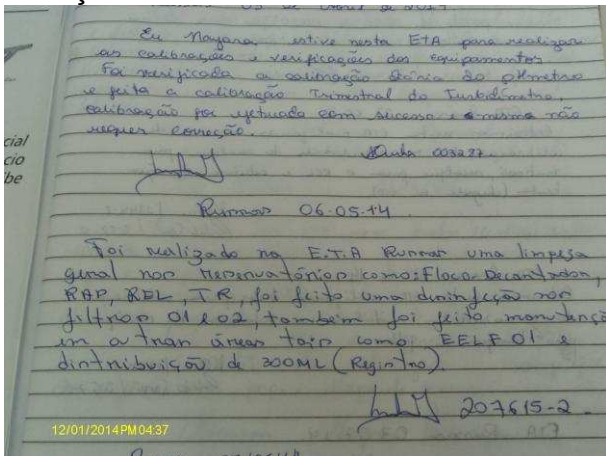 Eu Nayara, estive nesta ETA para realizar
as calibrações e verificações dos equipamentos
Foi verificada a calibração diária do pHmetro
e feita a calibração Trimestral do Turbidímetro,
calibração foi efetuada com sucesso e a mesma não
requer correção.
003227
cial
cio
be
Runas 06-05-14
Foi realizado na E.T.A Runas uma limpesa
geral nos Reservatórios como: Floco-Decantador,
RAP, REL, TR, foi feito uma desinfecção nos
filtros 01 e 02, também foi feito manutençã
em outras áreas tais como EELF 01 e
distribuição de 300ML (Registro).
207615-2.
12/01/2014 PM 04:37